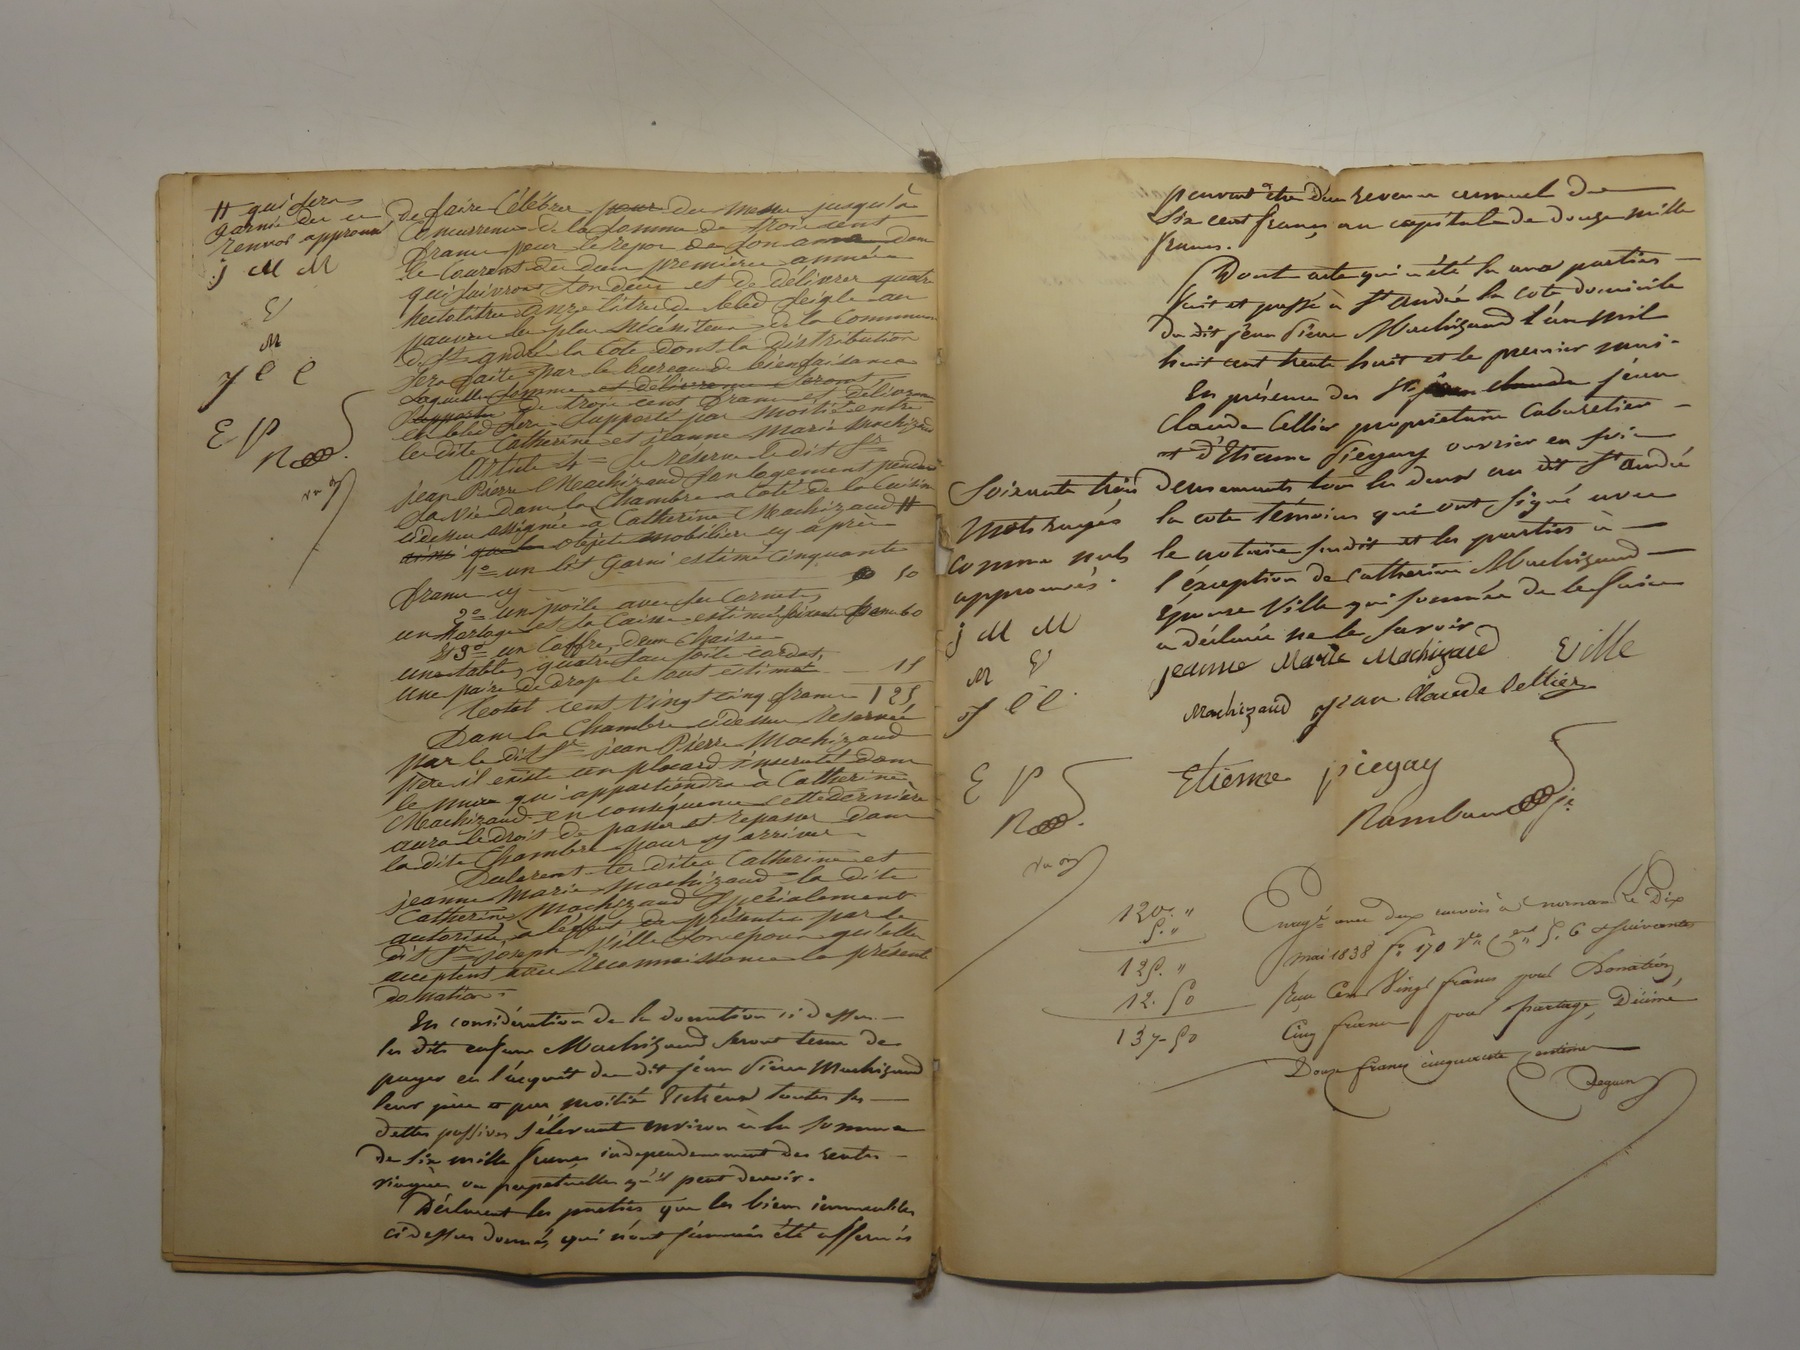 # qui sera
garnie du
renvoi approuvé
J M M
V
M
J C C
E P
R
de faire Célébrer pour des messes jusqu'à
Concurrence de la somme de trois cent
francs pour le repos de son ame dans
le Courant des deux premières années
qui suivront son decès et de délivrer quatre
hectolitres onze litres de bled seigle aux
pauvres les plus nécésiteux de la Commune
de St andré la Cote dont la distribution
sera faite par le bureau de bienfaisance
laquelle somme et délivrance seront
supportés de trois cent francs et délivrance
en bled sera supporté par moitié entre
les dites Catherine et jeanne Marie Machizaud
Article 4= Se réserve le dit Sr
jean Pierre Machizaud son logement pendant
sa vie dans la Chambre a Coté de la Cuisine
cidessus assignée a Catherine Machizaud #
ainsi que les objets mobiliers cy après
1o un lit Garni estimé Cinquante
francs cy 50
2o un poile avec ses Cornets
un horloge et sa Caisse estimés soixante francs 60
Et 3o un Coffre, deux Chaises
une table, quatre sacs toile
une paire de draps le tout estimé 15
Total cent Vingt cinq francs 125
Dans la Chambre cidessus reservée
par le dit Sr jean Pierre Machizaud
père il existe un placard incrusté dans
le mur qui appartiendra à Catherine
Machizaud en conséquence cette dernière
aura le droit de passer et repasser dans
la dite Chambre pour y arriver
Declarent les dites Catherine et
jeanne Marie Machizaud la dite
Catherine Machizaud Spécialement
autorisée à l'effet des présentes par le
dit Sr Joseph Ville son epoux qu'elles
acceptent avec reconnaissance la présente
donation.
En considération de la donation ci dessus
les dits enfans Machizaud seront tenus de
payer en l'acquit du dit jéan Pierre Machizaud
leur père et par moitié Entr'eux toutes ses
dettes passives s'élevant environ à la somme
de six mille francs independemment des rentes
viagères ou perpétuelles qu'il peut devoir.
Déclarent les parties que les biens immeubles
ci dessus donnés, qui n'ont jàmais été affermés
peuvent être d'un revenu annuel de
six cent francs au capital de douze mille
francs.
Dont acte qui a été lu aux parties
fait et passé à St andré la cote domicile
du dit jéan Pierre Machizaud l'an mil
huit cent trente huit et le premier mai.
En présence des Srs jean claude jéan
Claude Cellier propriétaire Cabaretier
et d'Etienne Piegay ouvrier en soie
demeurants tous les deux au dit St andré
la cote témoins qui ont signé avec
le notaire susdit et les parties à
l'éxception de Catherine Machizaud
épouse Ville qui sommée de le faire
a déclaré ne le savoir
Soixante trois
mots rayés
comme nuls
approuvés.
J M M
M V
J C C
E P
R
jeanne Marie Machizaud Ville
Machizaud jean Claude Cellier
Etienne piegay
Rambaud
120. "
5. "
125. "
12. 50
137-50
Enregé avec deux renvois à Mornant le Dix
mai 1838 fo 170 Vo Ces 5. 6 et suivantes
Reçu Cent Vingt francs pour Donation,
Cinq francs pour partage, Décime
Douze francs cinquante Centimes